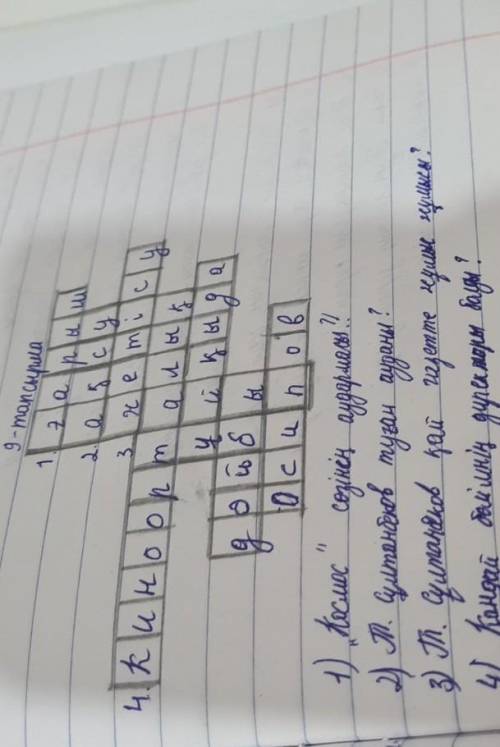 9-тапсырма
1. ғарыш
2. ақсу
3. жетісу
4. Киноорталық
ұйқыда
дойбы
Осипов
1) "Космос" сөзінің аудармасы?
2) Т. Сұлтанбеков туған ауданы?
3) Т. Сұлтанбеков қай газетте жұмыс
4) Қандай бөлімнің директоры болды?